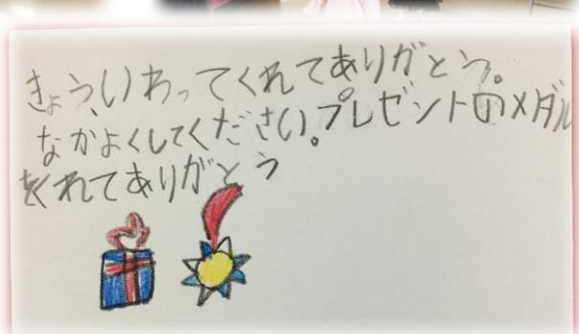 きょう、いわってくれてありがとう。
なかよくしてください。プレゼントのメダル
をくれてありがとう